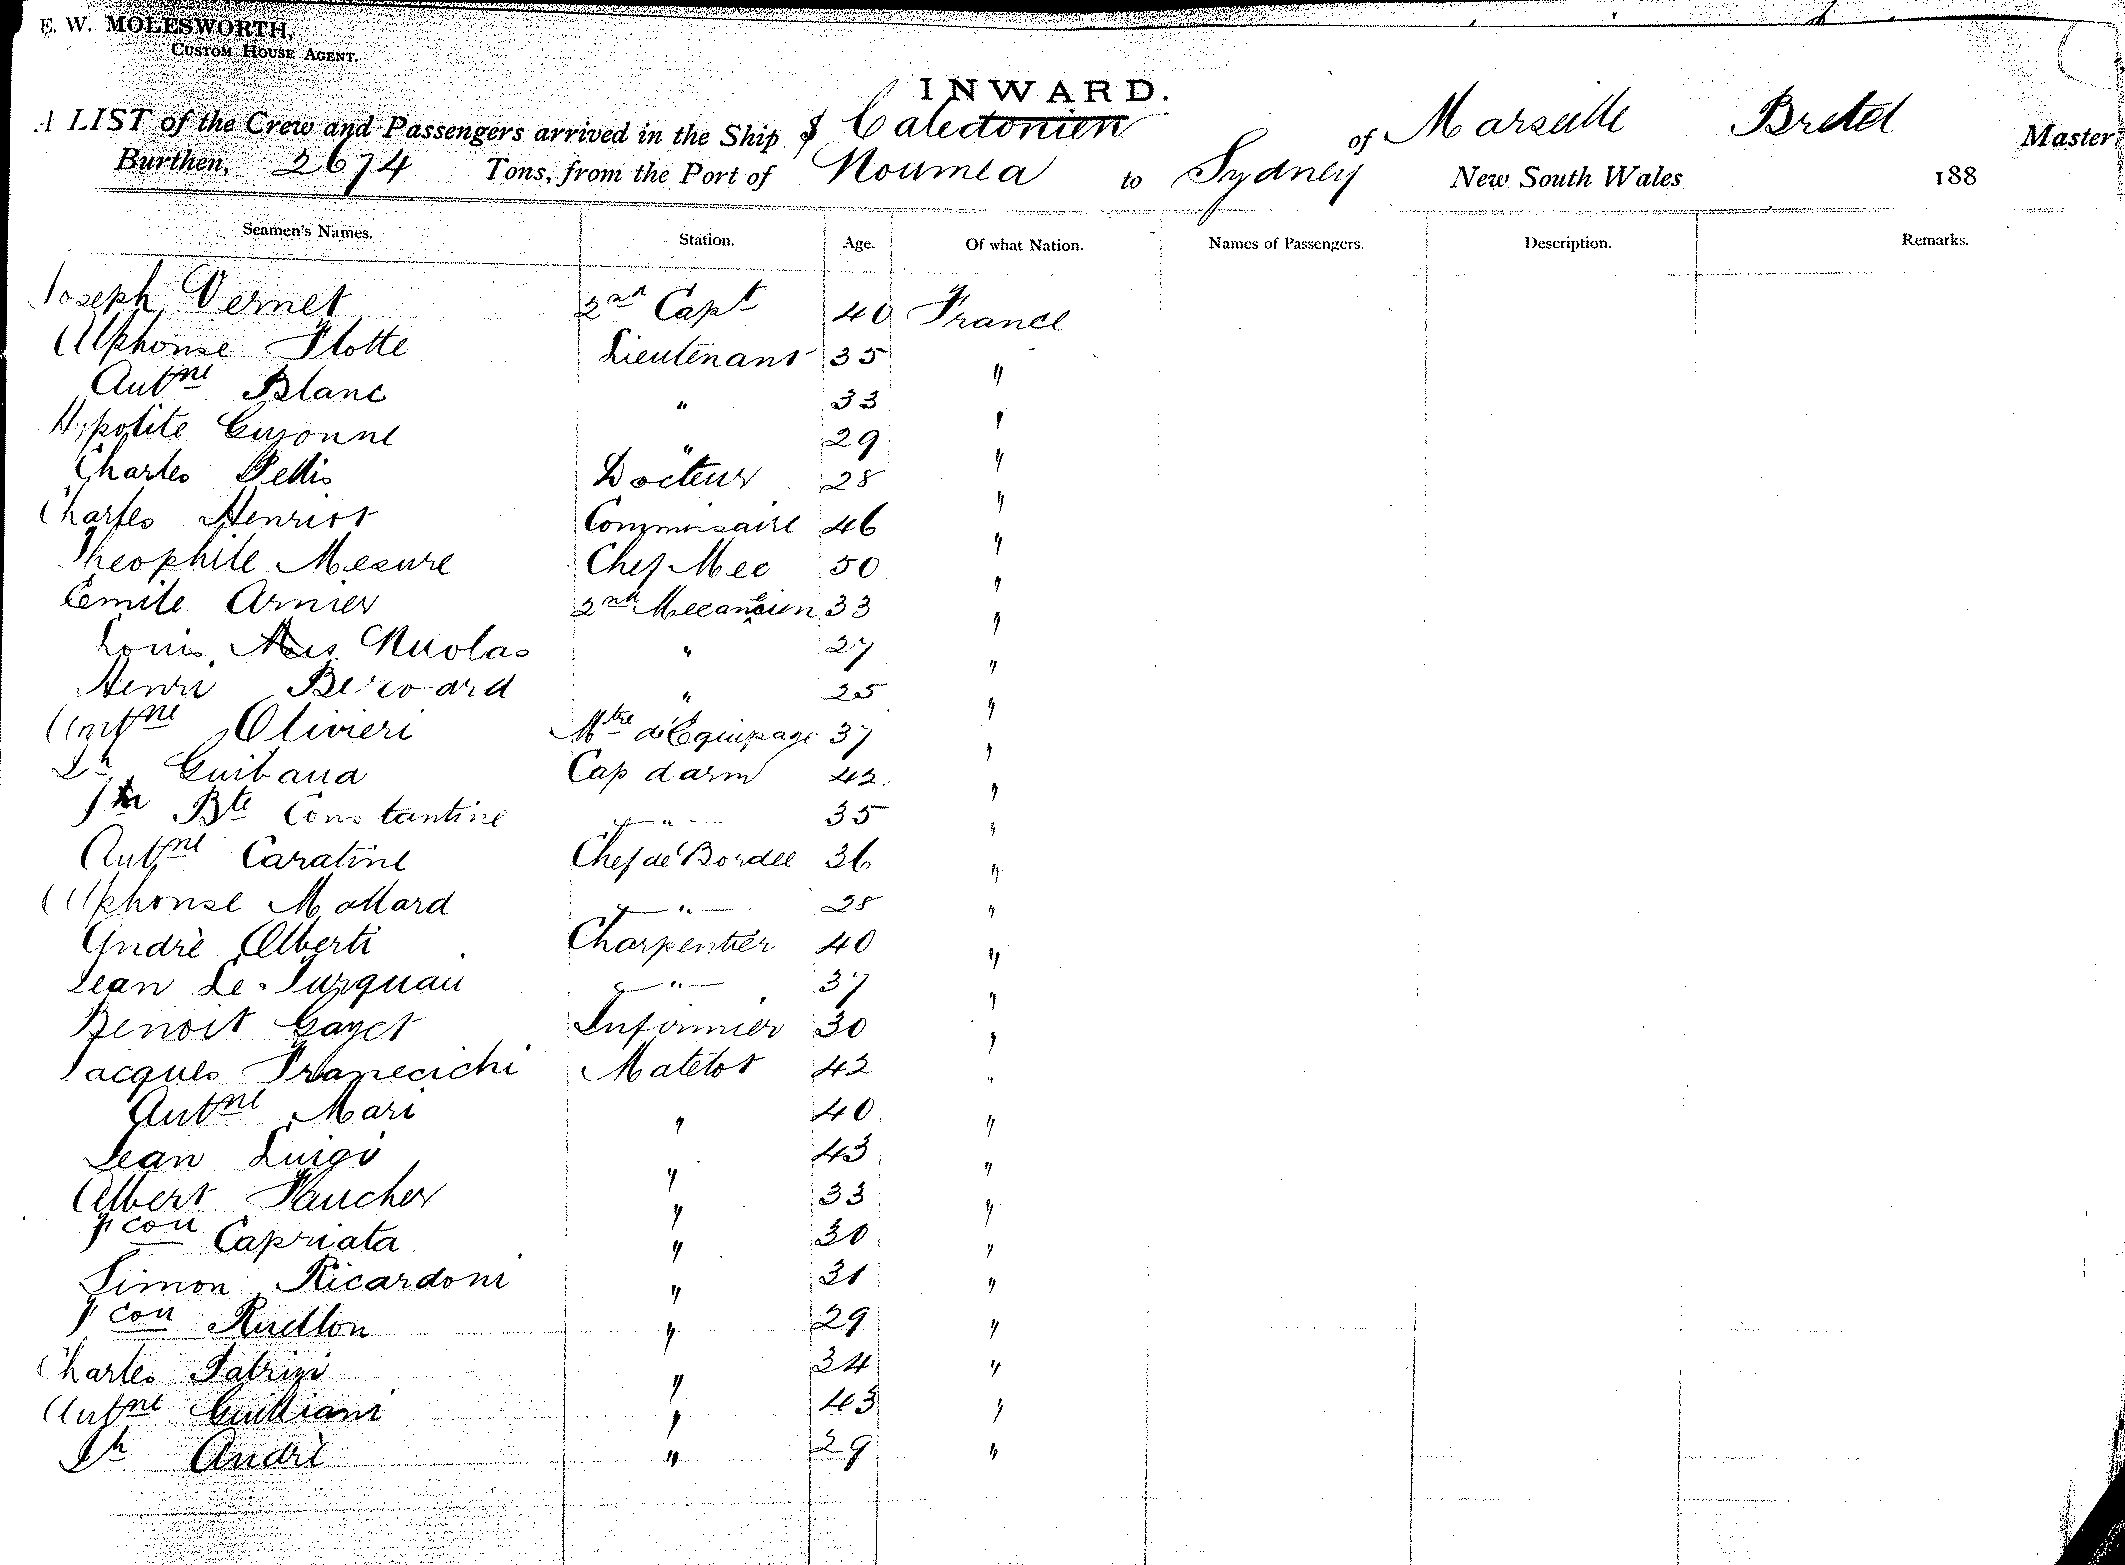 E. W. MOLESWORTH,
CUSTOM HOUSE AGENT.
INWARD.
A LIST of the Crew and Passengers arrived in the Ship Caledonien of Marseille Bretel Master,
Burthen, 2674 Tons, from the Port of Noumea to Sydney New South Wales 188
Seamen's Names. Station. Age. Of what Nation. Names of Passengers. Description. Remarks.
Joseph Vernet 2nd Capt 40 France
Alphonse Flotte Lieutenant 35 "
Antne Blanc " 33 "
Hypolite Guyonne " 29 "
Charles Pellis Docteur 28 "
Charles Henriot Commissaire 46 "
Theophile Mesure Chef Mec 50 "
Emile Arnier 2nd Mecanicien 33 "
Louis Nicolas " 27 "
Henri " 25 "
Antne Olivieri Mtre d'Equipage 37 "
Guibaud Cap d'arm 42 "
Bte Constantine " 35 "
Antne Caratine Chef de Bordee 36 "
Alphonse Mallard " 28 "
Andrè Alberti Charpentier 40 "
Jean Le Turquais " 37 "
Benoit Gayet Infirmier 30 "
Jacques Franecichi Matelot 42 "
Antne Mari " 40 "
Jean Luigi " 43 "
Albert Faucher " 33 "
Fcon Capriata " 30 "
Simon Ricardoni " 31 "
Fcon Ruellon " 29 "
Charles Fabrizi " 34 "
Antne Guilliani " 43 "
Jh Andrè " 29 "